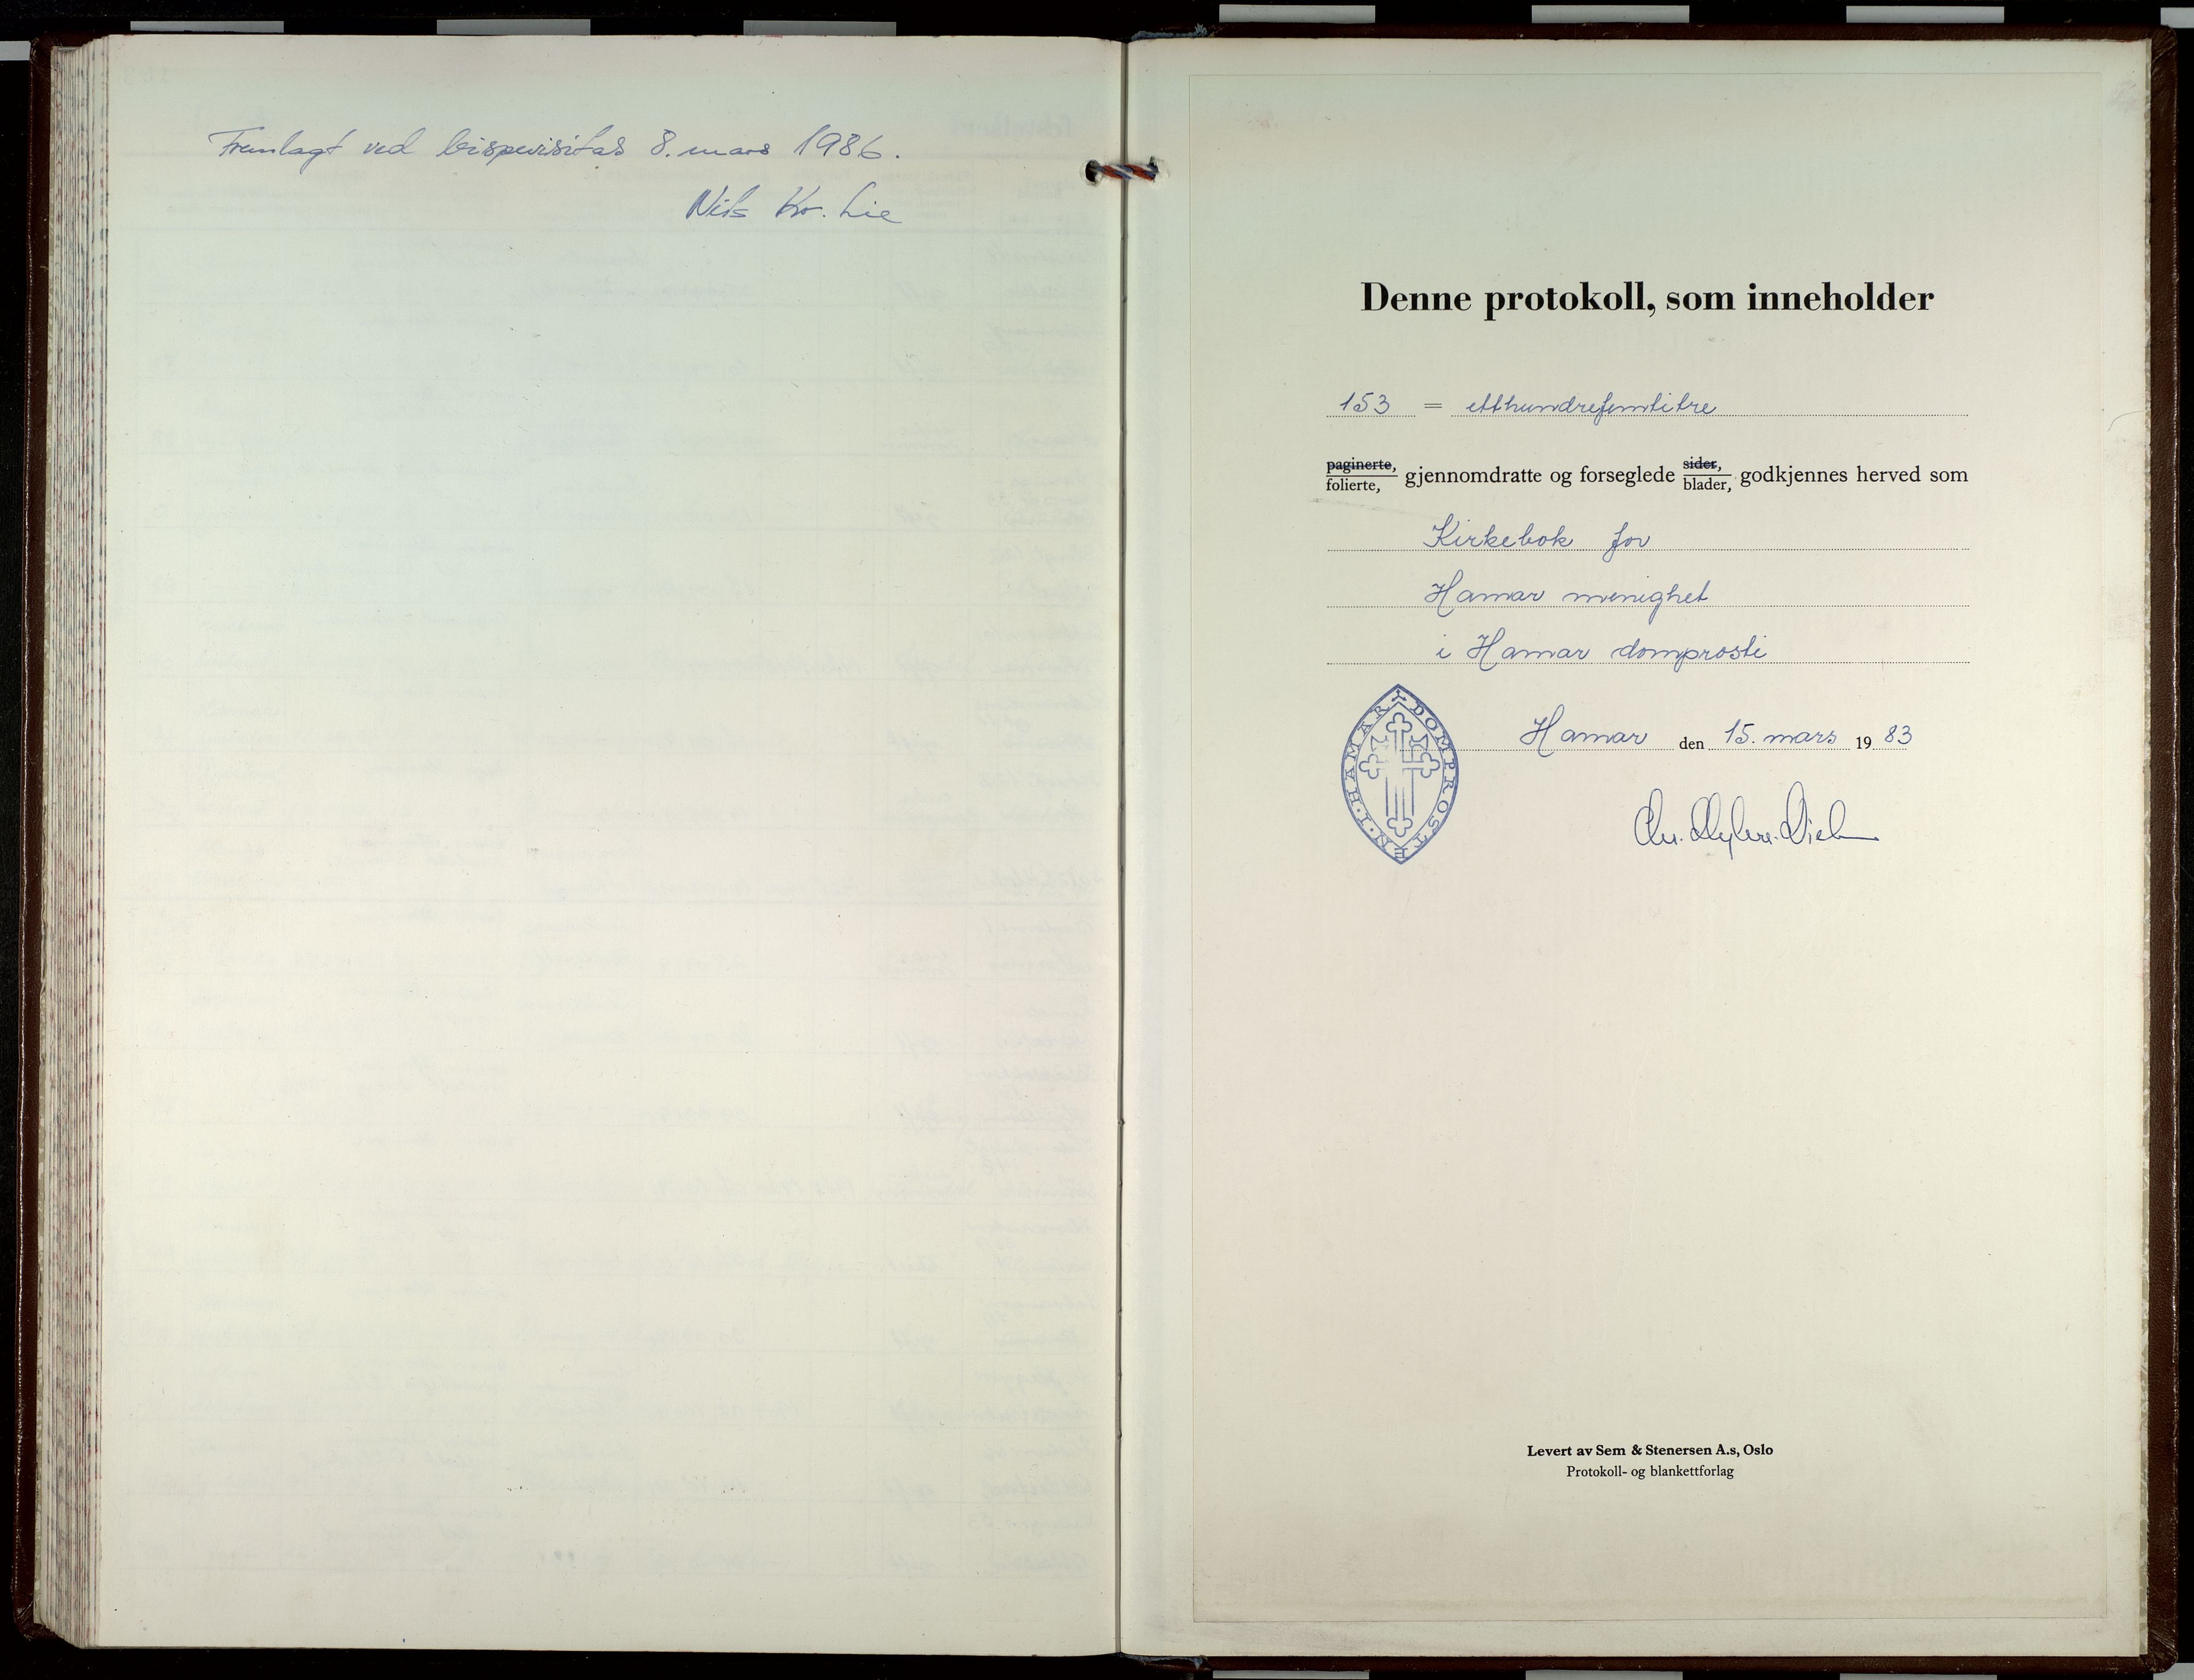 Fremlagt ved bispevisitas 8. mars 1986.
Nils Kr. Lie
Denne protokoll, som inneholder
153 = etthundrefemtitre
paginerte, folierte, gjennomdratte og forseglede sider, blader, godkjennes herved som
Kirkebok for
Hamar menighet
i Hamar domprosti
DOMPROSTEN·I·HAMAR
Hamar den 15. mars 1983
Levert av Sem & Stenersen A.s, Oslo
Protokoll- og blankettforlag